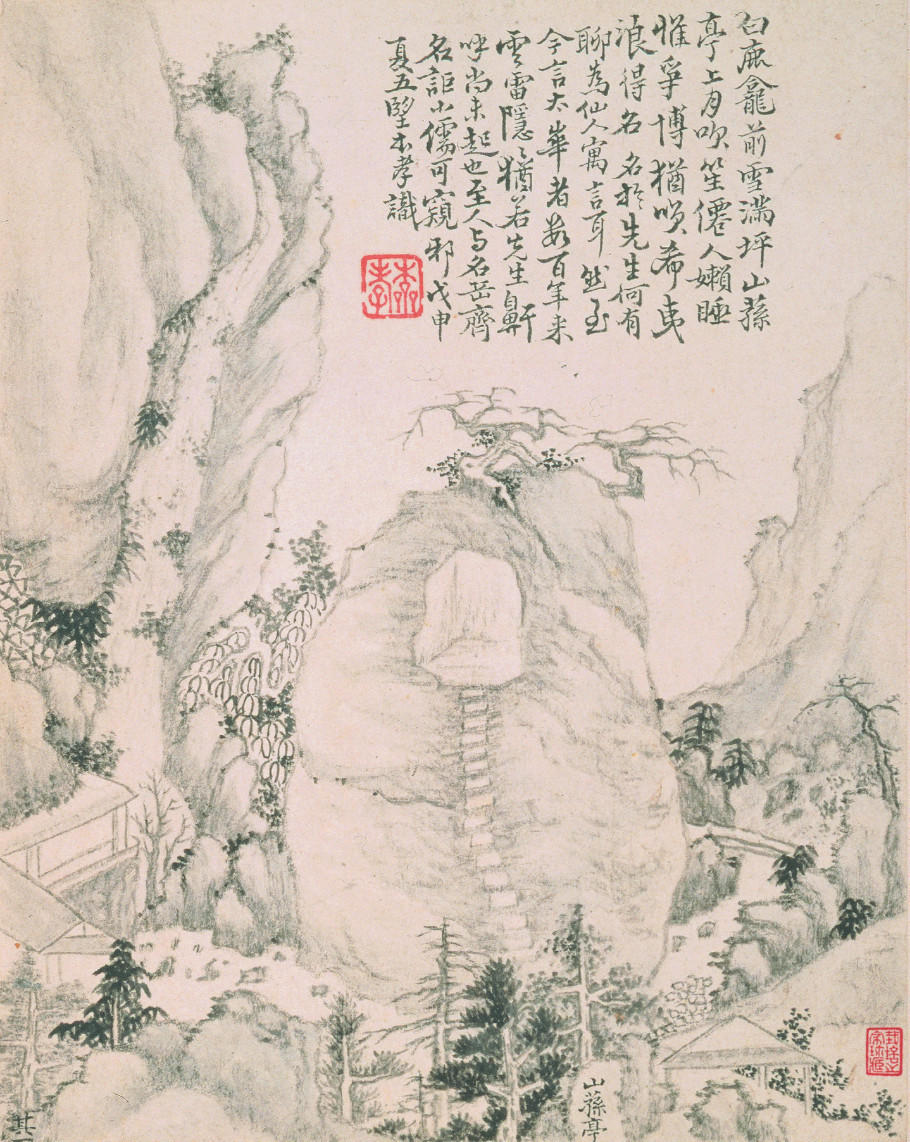 白鹿龕前雪滿坪山蓀
亭上月吹笙僊人嬾睡
惟爭博猶咲希夷
浪得名 名於先生何有
聊為仙人寓言耳然至
今言太華者數百年来
雲雷隱〻猶若先生鼾
呼尚未起也至人与名岳齊
名詎小儒可窺邪戊申
夏五望本孝識
本孝
山蓀亭
其